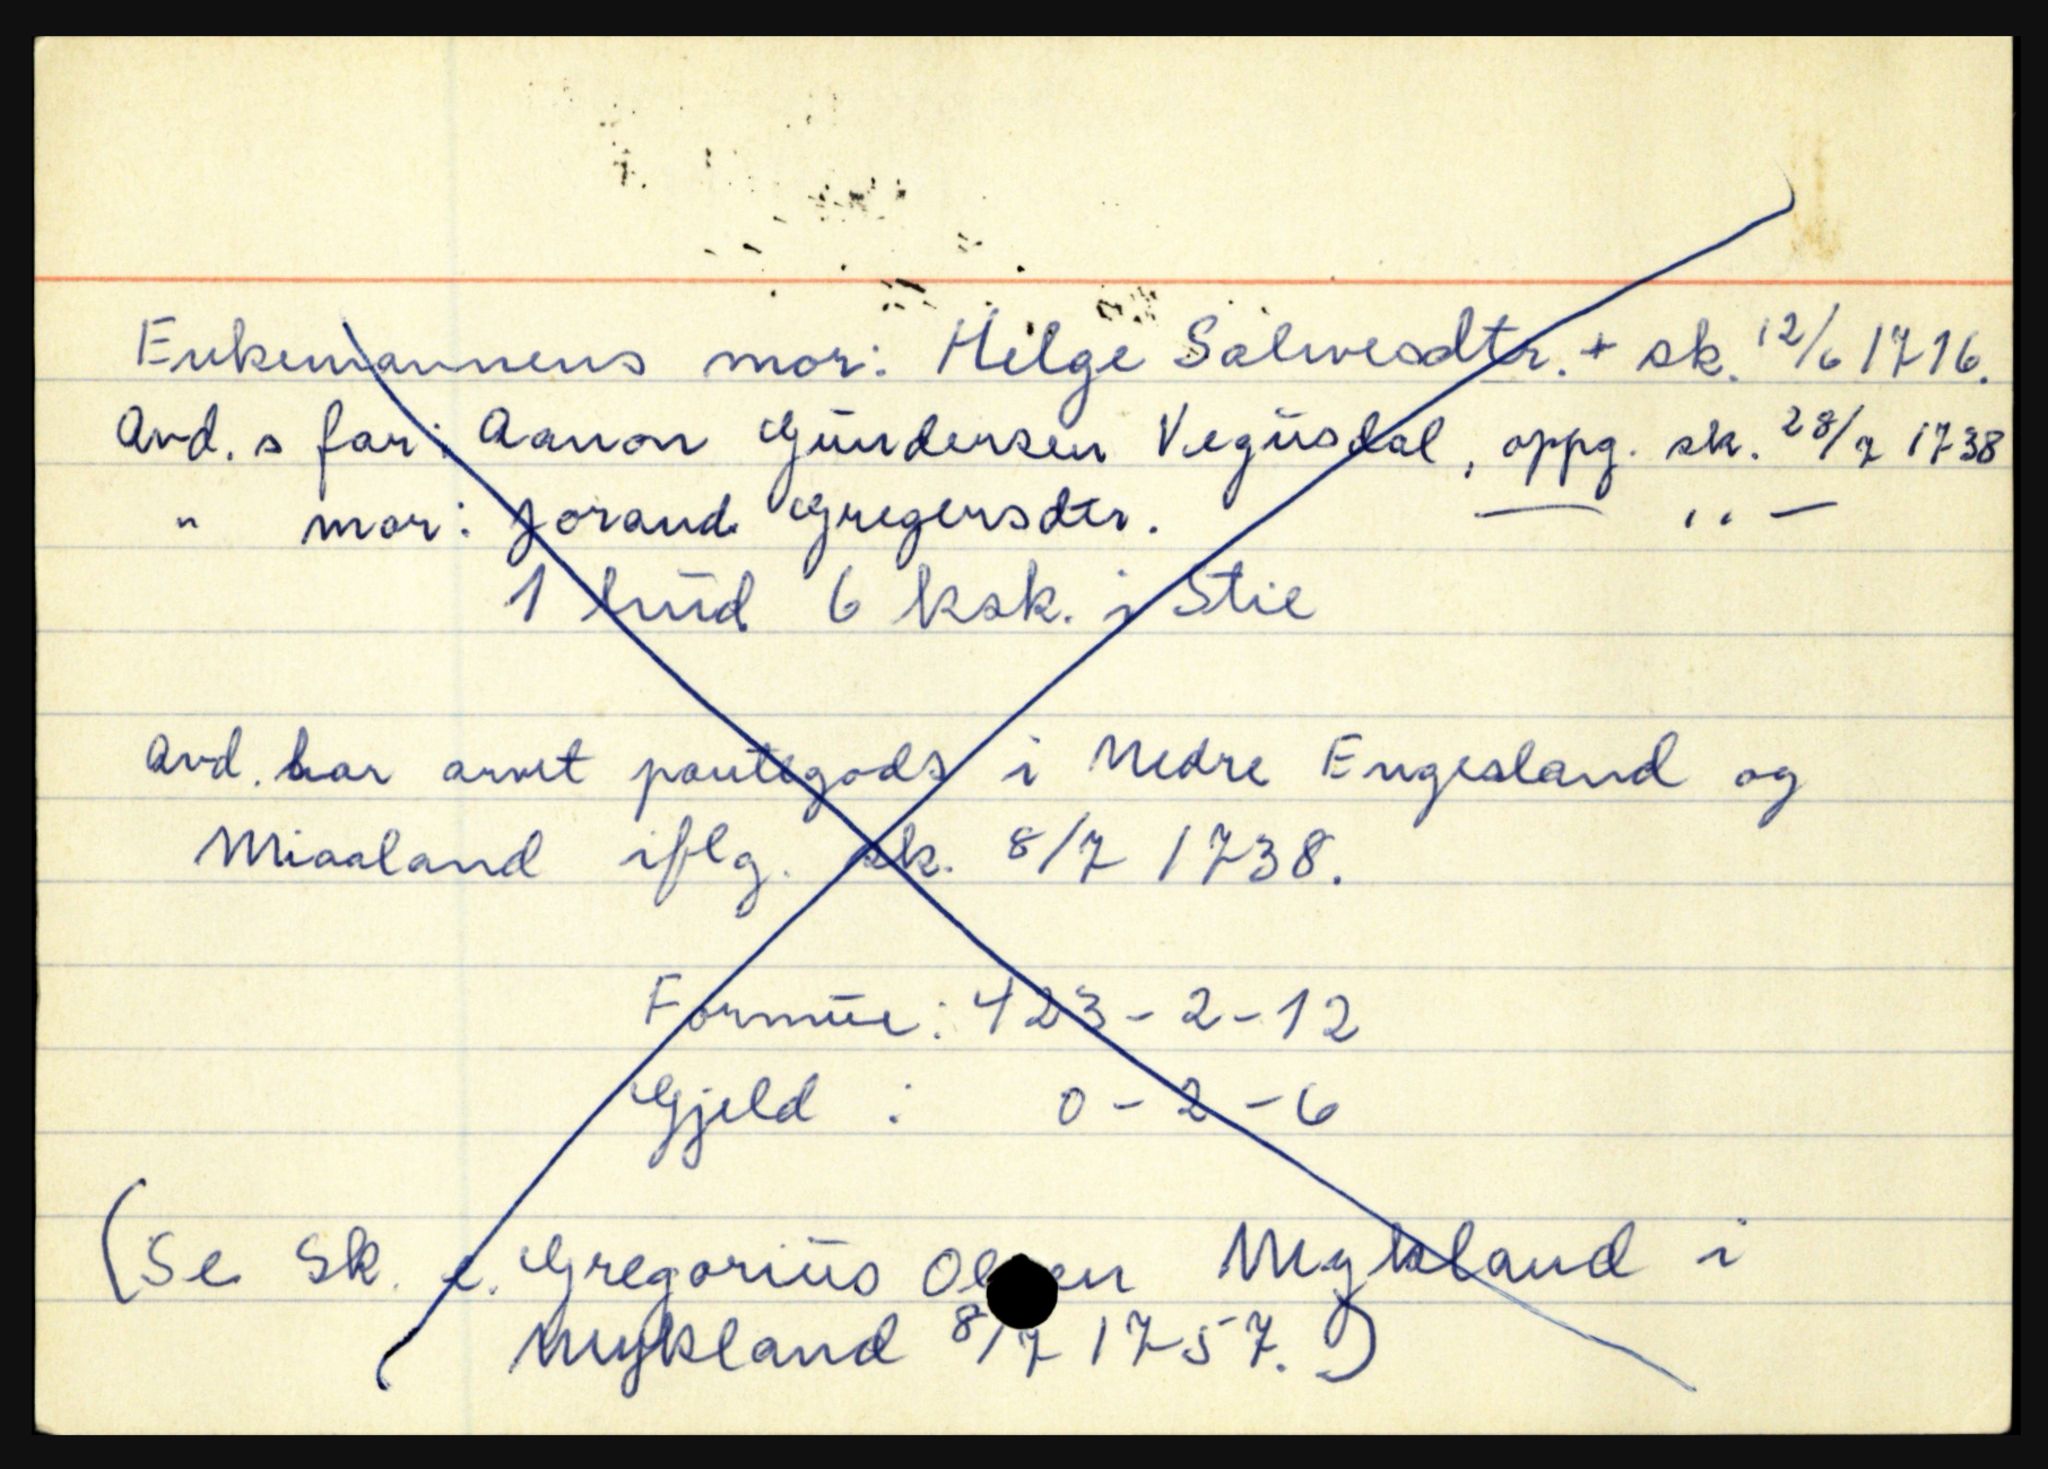 Enkemannens mor: Helge Salvesdtr. + sk. 12/6 1716.
Avd.s far: Aanon Gundersen Vegusdal, oppg. sk. 28/7 1738
" mor: Jorand Gregersdtr. — ,, —
1 hud 6 ksk. i Stie
Avd. har arvet pantegods i Nedre Engesland og
Miaaland iflg. sk. 8/7 1738.
Formue: 423-2-12
Gjeld : 0-2-6
(Se Sk. e. Gregorius Olsen Mykland i
Mykland 8/7 1757.)